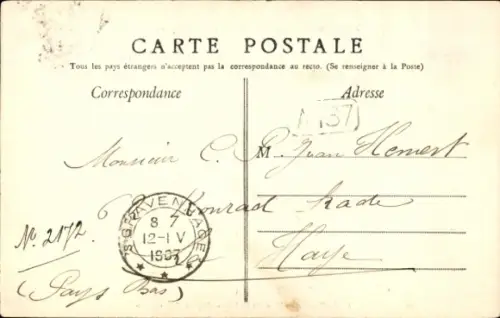 CARTE POSTALE
Tous les pays étrangers n'acceptent pas la correspondance au recto. (Se renseigner à la Poste)
Correspondance
Adresse
137
Monsieur C. P. Jvan Hemert
M
6 Konrad kade
'S GRAVENHAGE
8 7
12-1 V
1907
No 2172.
La Haye
(Pays Bas)